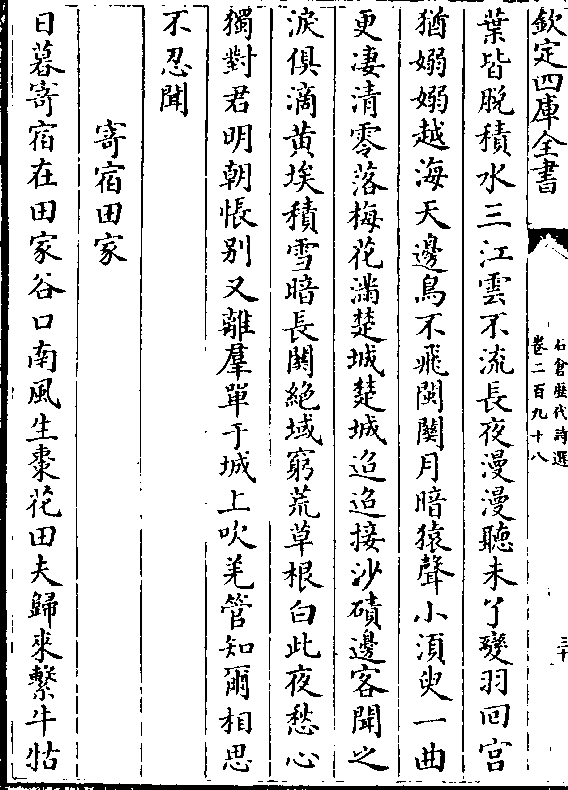 欽定四庫全書
石倉歷代詩選
卷二百九十八
三十
葉皆脫積水三江雲不流長夜漫漫聽未了變羽囘宮
猶嫋嫋越海天邊鳥不飛閩關月暗猿聲小須臾一曲
更凄清零落梅花滿楚城楚城迢迢接沙磧邊客聞之
淚俱滴黃埃積雪暗長關絶域窮荒草根白此夜愁心
獨對君明朝悵别又離羣單于城上吹羌管知爾相思
不忍聞
寄宿田家
日暮寄宿在田家谷口南風生棗花田夫歸來繫牛牯